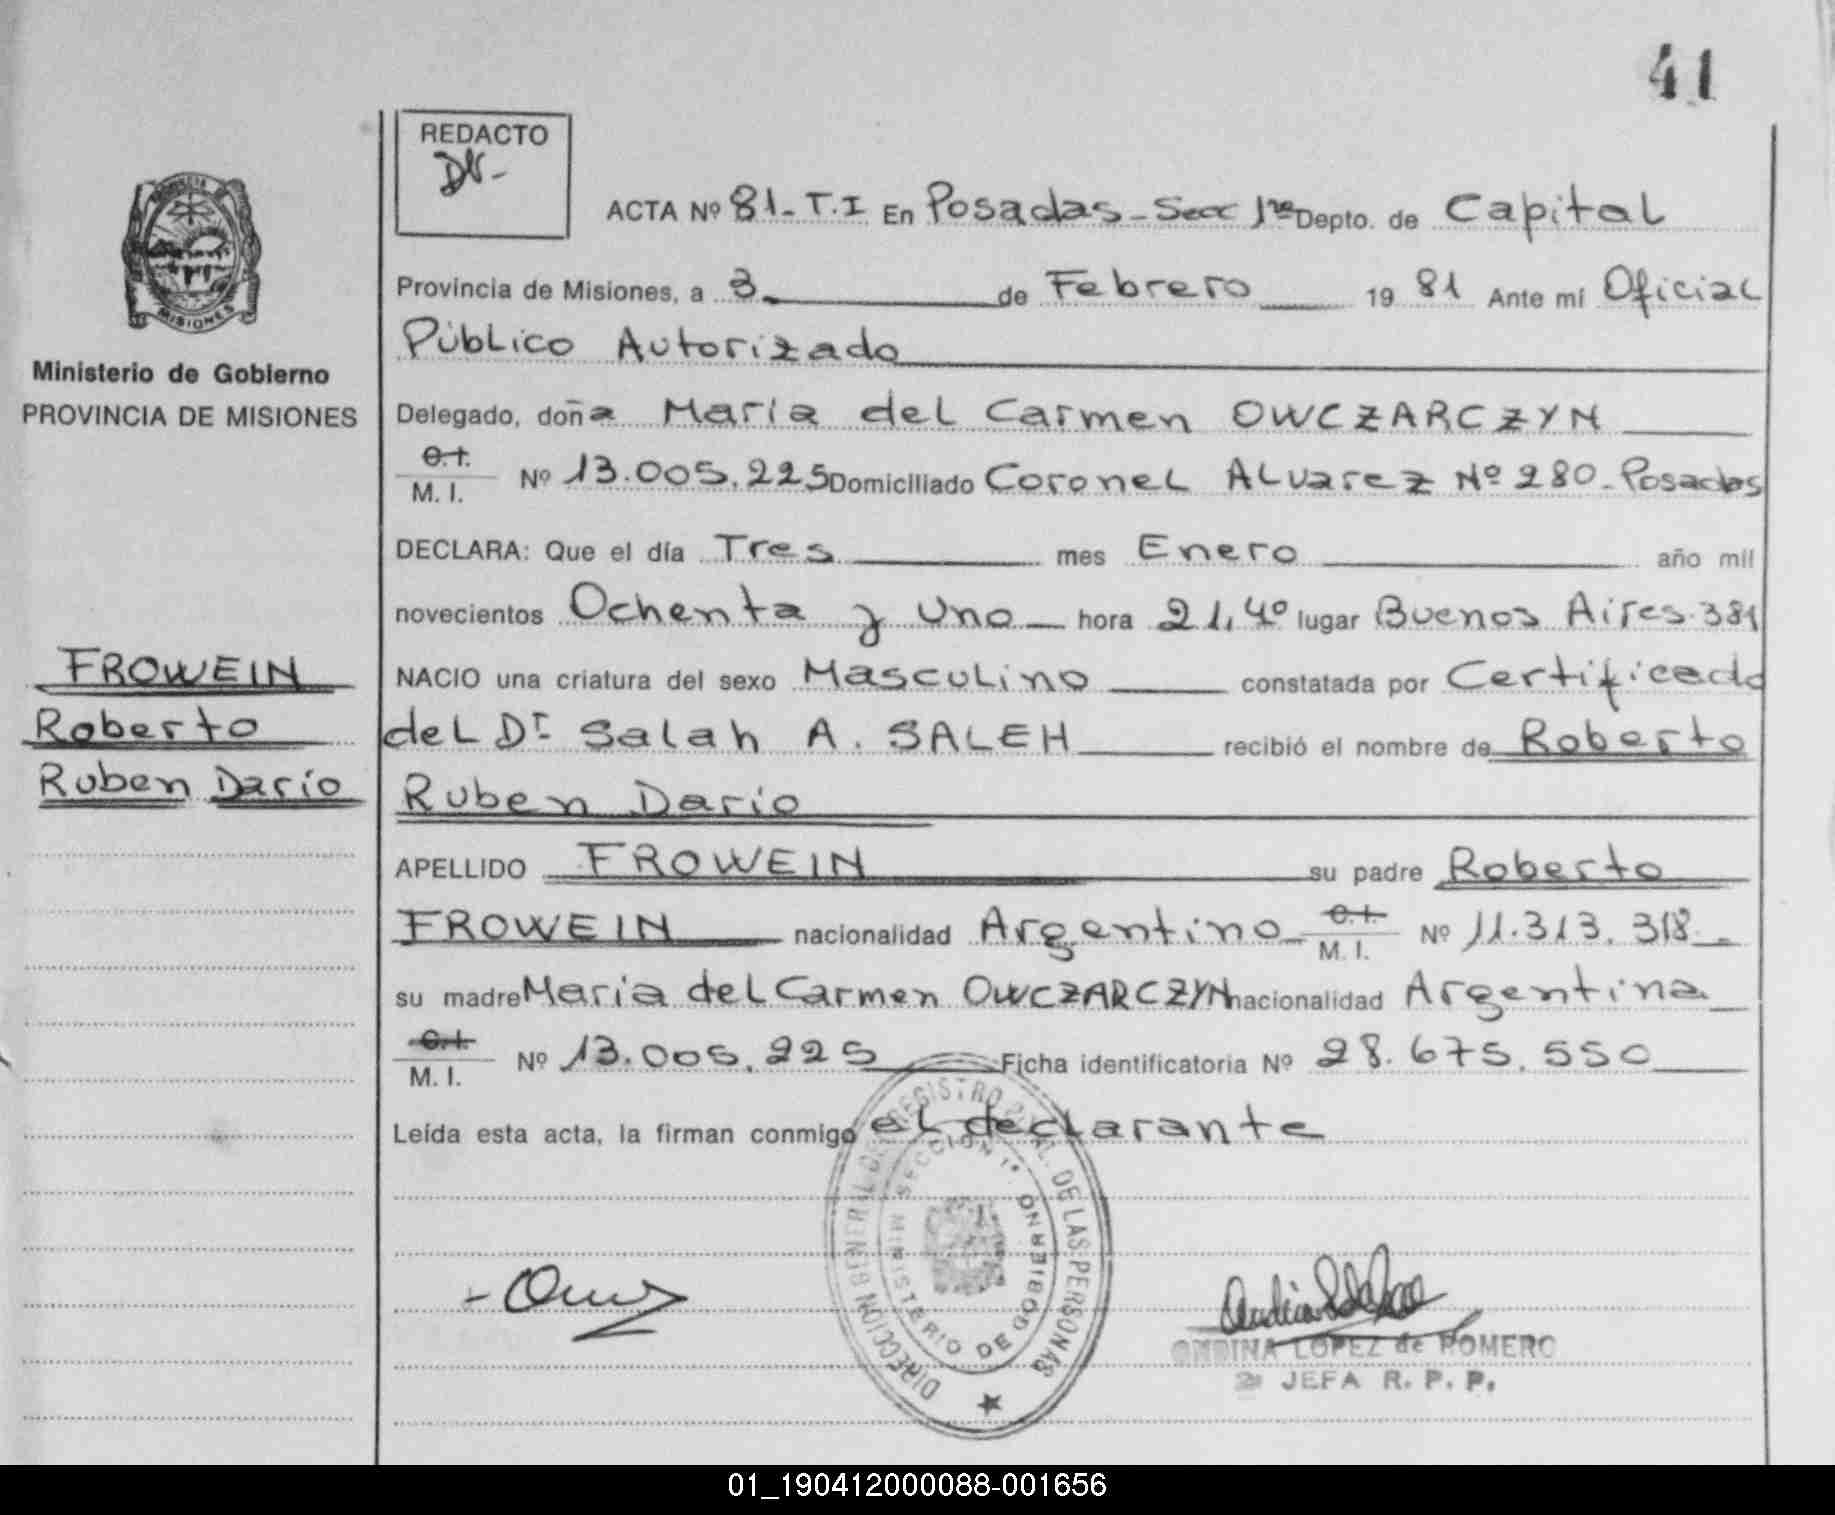 41
REDACTO
ACTA Nº 81-T.I En Posadas-Secc 1ra Depto. de Capital
Provincia de Misiones, a 3 de Febrero 1981 Ante mí Oficial
Público Autorizado
MISIONES
Ministerio de Gobierno
PROVINCIA DE MISIONES
Delegado, doña María del Carmen OWCZARCZYN
C.I.
M. I. Nº 13.005.225 Domiciliado Coronel Alvarez Nº 280-Posadas
DECLARA: Que el día Tres mes Enero año mil
novecientos Ochenta y Uno hora 21,40 lugar Buenos Aires 381
NACIO una criatura del sexo Masculino constatada por Certificado
del Dr Salah A. SALEH recibió el nombre de Roberto
Ruben Dario
FROWEIN
Roberto
Ruben Darío
APELLIDO FROWEIN su padre Roberto
FROWEIN nacionalidad Argentino C.I. M. I. Nº 11.313.318
su madre María del Carmen OWCZARCZYN nacionalidad Argentina
C.I.
M. I. Nº 13.005.225 Ficha identificatoria Nº 28.675.550
Leída esta acta, la firman conmigo el declarante
DIRECCION GENERAL DEL REGISTRO PCIAL. DE LAS PERSONAS
SECCION 1ª MINISTERIO DE GOBIERNO
ONDINA LOPEZ de ROMERO
2ª JEFA R. P. P.
01_190412000088-001656